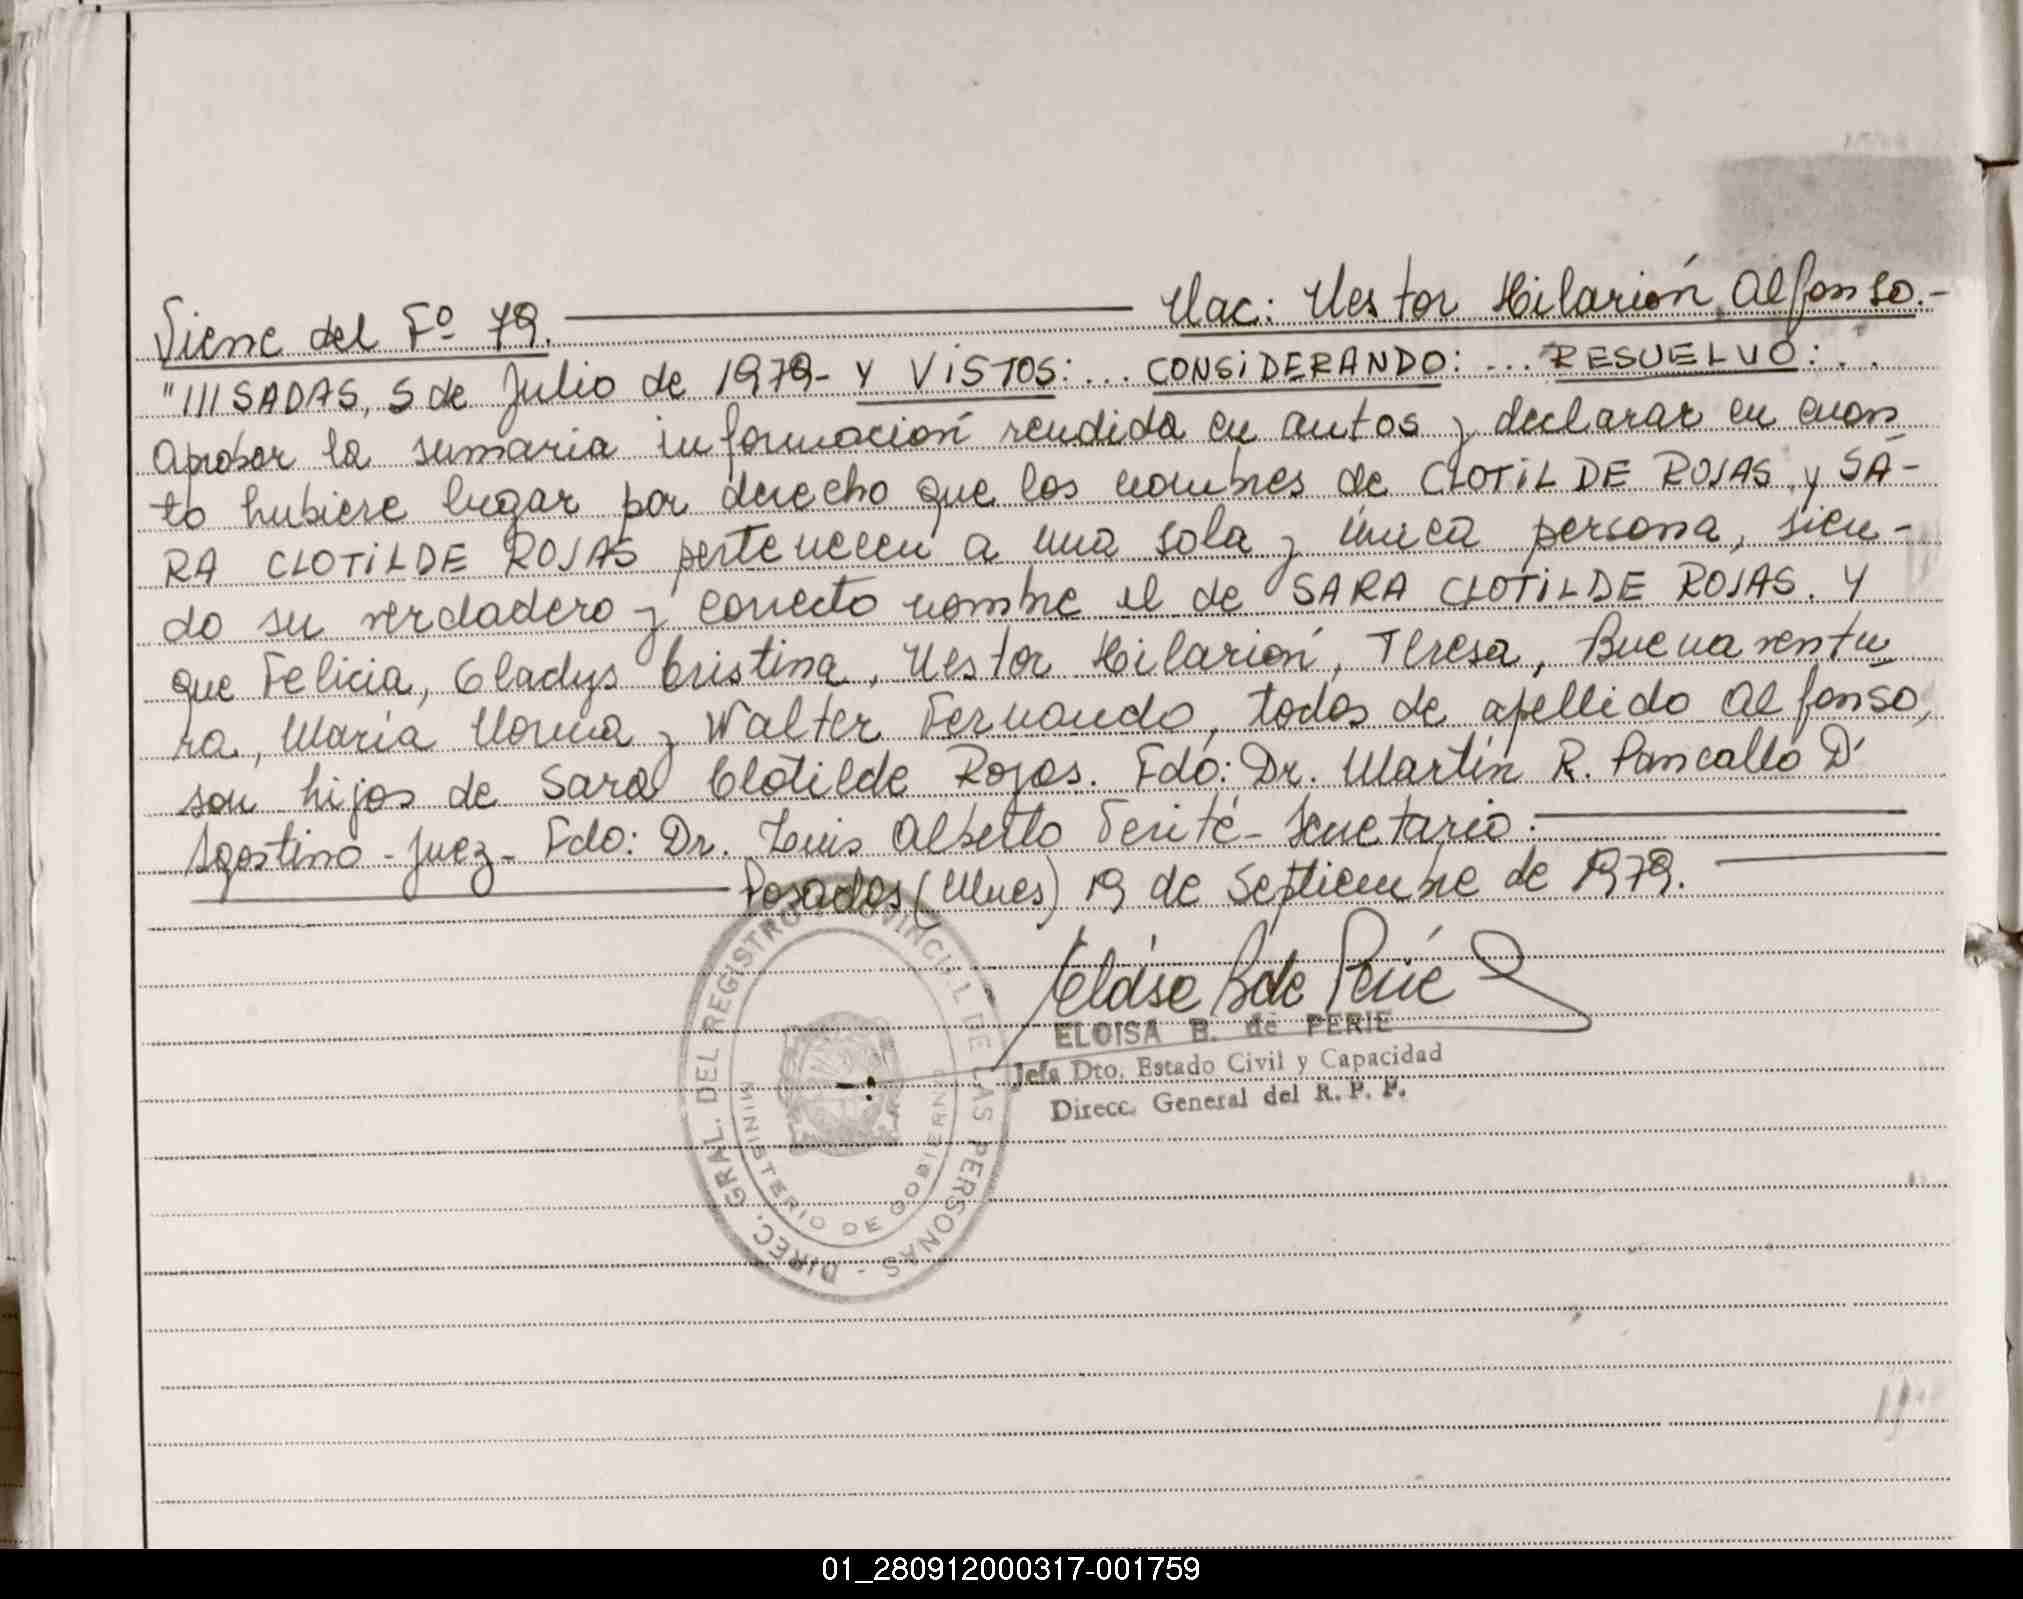 Viene del Fº 79. Nac: Nestor Hilarión Alfonso.-
"///SADAS, 5 de Julio de 1979- Y VISTOS: ... CONSIDERANDO: ... RESUELVO: ...
aprobar la sumaria información rendida en autos y declarar en cuan
to hubiere lugar por derecho que los nombres de CLOTILDE ROJAS y SA-
RA CLOTILDE ROJAS pertenecen a una sola y única persona, sien-
do su verdadero y correcto nombre el de SARA CLOTILDE ROJAS. Y
que Felicia, Gladys Cristina, Nestor Hilarión, Teresa, Buenaventu
ra, María Norma y Walter Fernando, todos de apellido Alfonso,
son hijos de Sara Clotilde Rojas. Fdo: Dr. Martín R. Pancallo D'
Agostino - Juez - Fdo: Dr. Luis Alberto Terité - Secretario.
Posadas (Mnes) 19 de Septiembre de 1979.
Eloísa B de Perié
ELOISA B. de PERIE
Jefa Dto. Estado Civil y Capacidad
Direcc. General del R. P. P.
DIREC. GRAL. DEL REGISTRO PROVINCIAL DE LAS PERSONAS -
MINISTERIO DE GOBIERNO
01_280912000317-001759